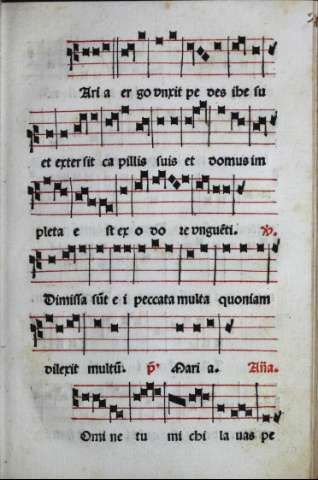 Ari a er go vnxit pe des ihe su
et exter sit ca pillis suis et domus im
pleta e st ex o do re vnguēti. ℣.
Dimissa sūt e i peccata multa quoniam
dilexit multū. p̄. Mari a. Aña.
Omi ne tu mi chi la uas pe